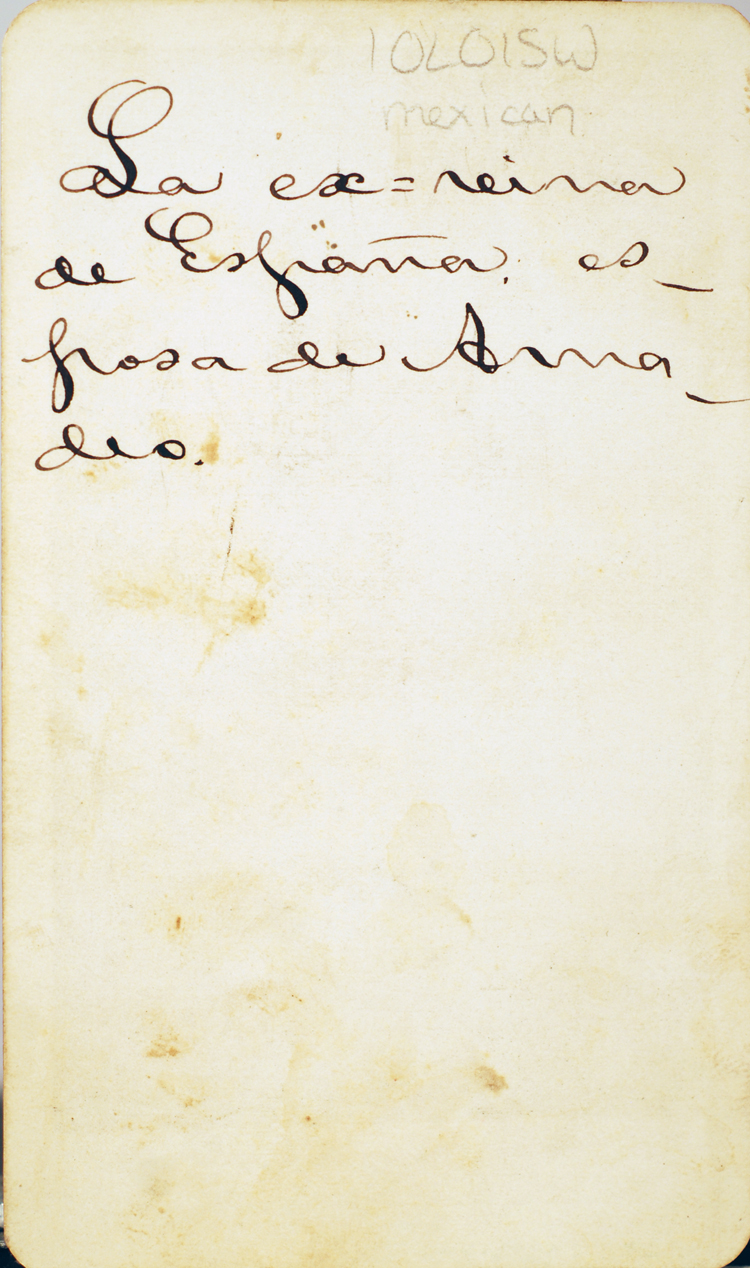 10L01SW
mexican
La ex=reina
de España, es_
posa de Ama_
deo.